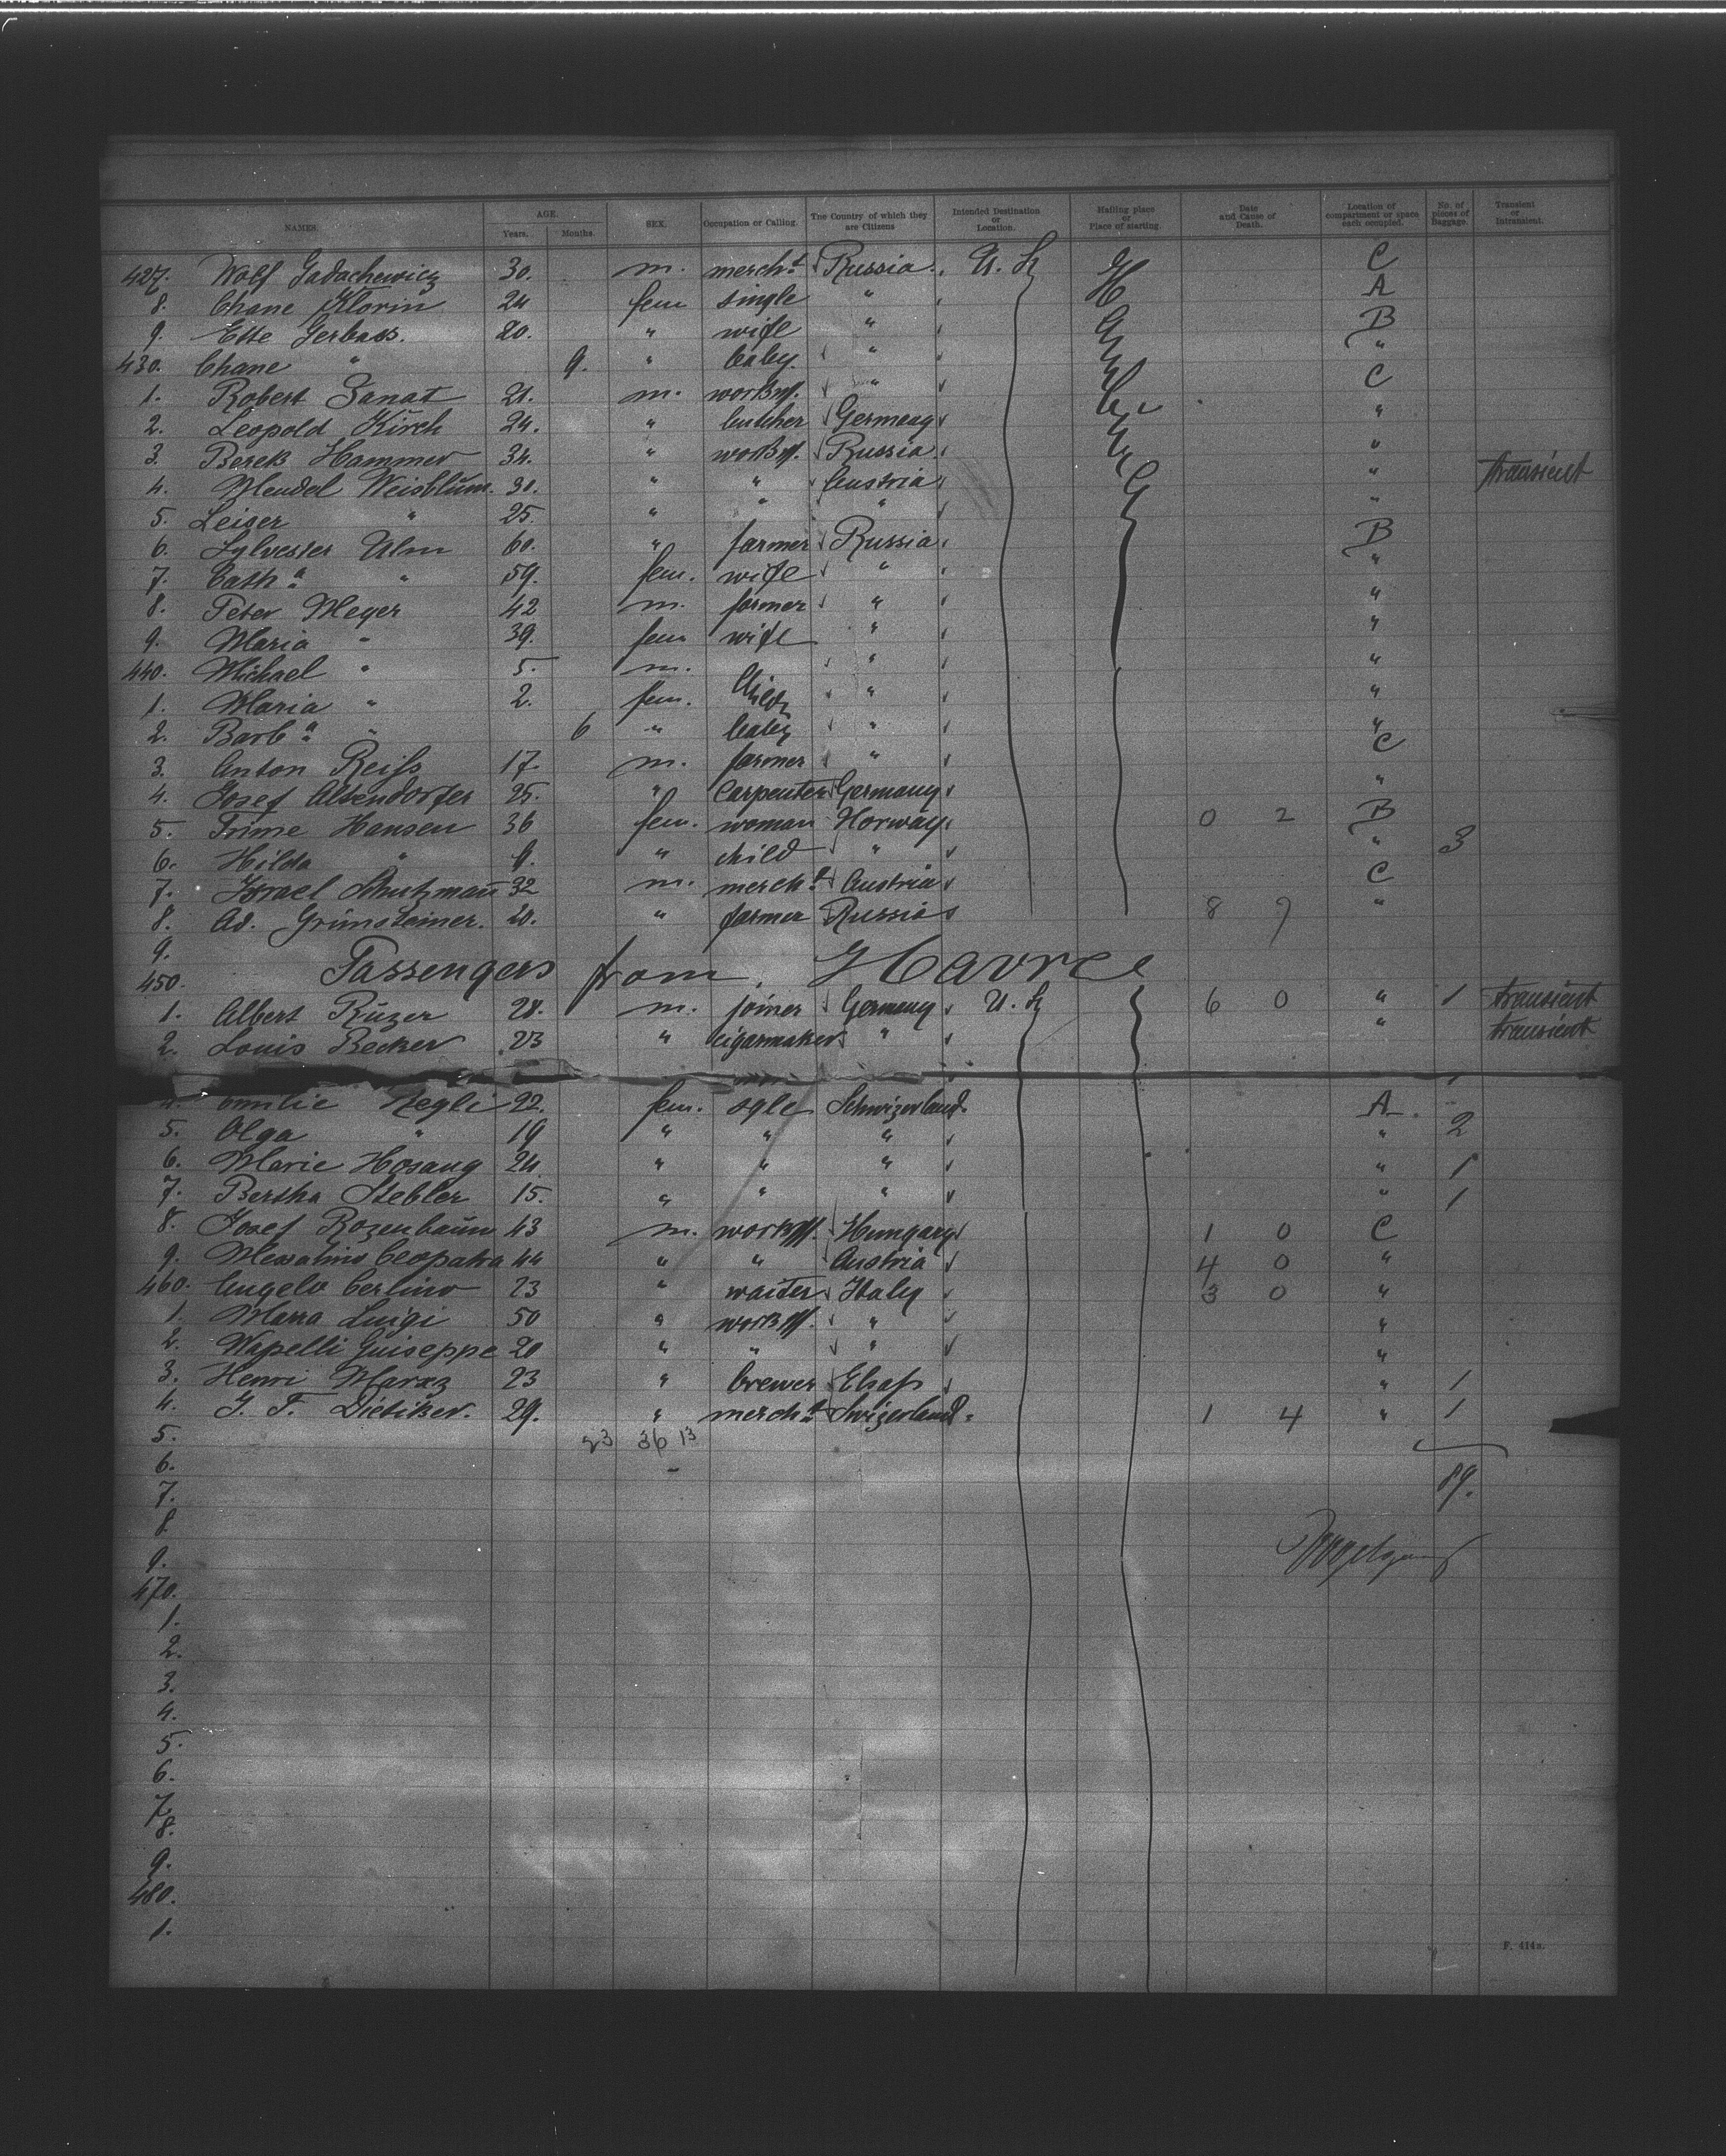 NAMES. AGE. Years. Months. SEX. Occupation or Calling. The Country of which they are Citizens Intended Destination or Location. Mailing place or Place of starting. Date and Cause of Death. Location of compartment or space each occupied. No. of pieces of Baggage. Transient or Intransient.
427. Wolf 30. m. mercht Russia U. S. C
8. Chane Klorin 24 fem single " A
9. Ette Gerbass. 20. " wife " B
430. Chane " 9. " baby. " "
1. Robert Sanat 21. m. " C
2. Leopold Kirch 24. " butcher Germany "
3. Berek Hammer 34. " Russia "
4. Mendel Weisblüm. 30. " " Austria " transient
5. Leiser " 25. " " " "
6. Sylvester Ulm 60. " farmer Russia B
7. Catha " 59. fem. wife " "
8. Peter Meyer 42 m. farmer " "
9. Maria " 39. fem wife " "
440. Michael " 5. m. " "
1. Maria " 2. fem. child " "
2. Barba " 6 " baby " "
3. Anton Reiss 17 m. farmer " C
4. Josef Altendorfer 25. " carpenter Germany "
5. Trine Hansen 36 fem. woman Norway 0 2 B
6. Hilda " " child " " 3
7. Israel Shutzman 32 m. mercht Austria C
8. Ad. Grünsteiner. 20. " farmer Russia 8 "
9.
450. Passengers from Havre
1. Albert Rüzer 28. m. joiner Germany U. S. 6 0 " 1 transient
2. Louis Becker 23 " cigarmaker " " transient
4. Emilie Negli 22. fem. sgle Schwizerland. A
5. Olga " 19 " " " " 2
6. Marie Hosang 24 " " " " 1
7. Bertha Stebler 15. " " " " 1
8. Josef Rozenbaüm 43 m. Hungary 1 0 C
9. 44 " " Austria 4 0 "
460. Angelo Cerlino 23 " waiter Italy 3 0 "
1. Marra Luigi 50 " " "
2. Wapelli Guiseppe 20 " " " "
3. Henri Maraz 23 " brewer Elsass " 1
4. J. F. Dietiker. 29. " mercht Swizerland. 1 4 " 1
5. 23 36 13
6.
7. 89.
8.
9.
470.
1.
2.
3.
4.
5.
6.
7.
8.
9.
480.
1.
F. 414a.